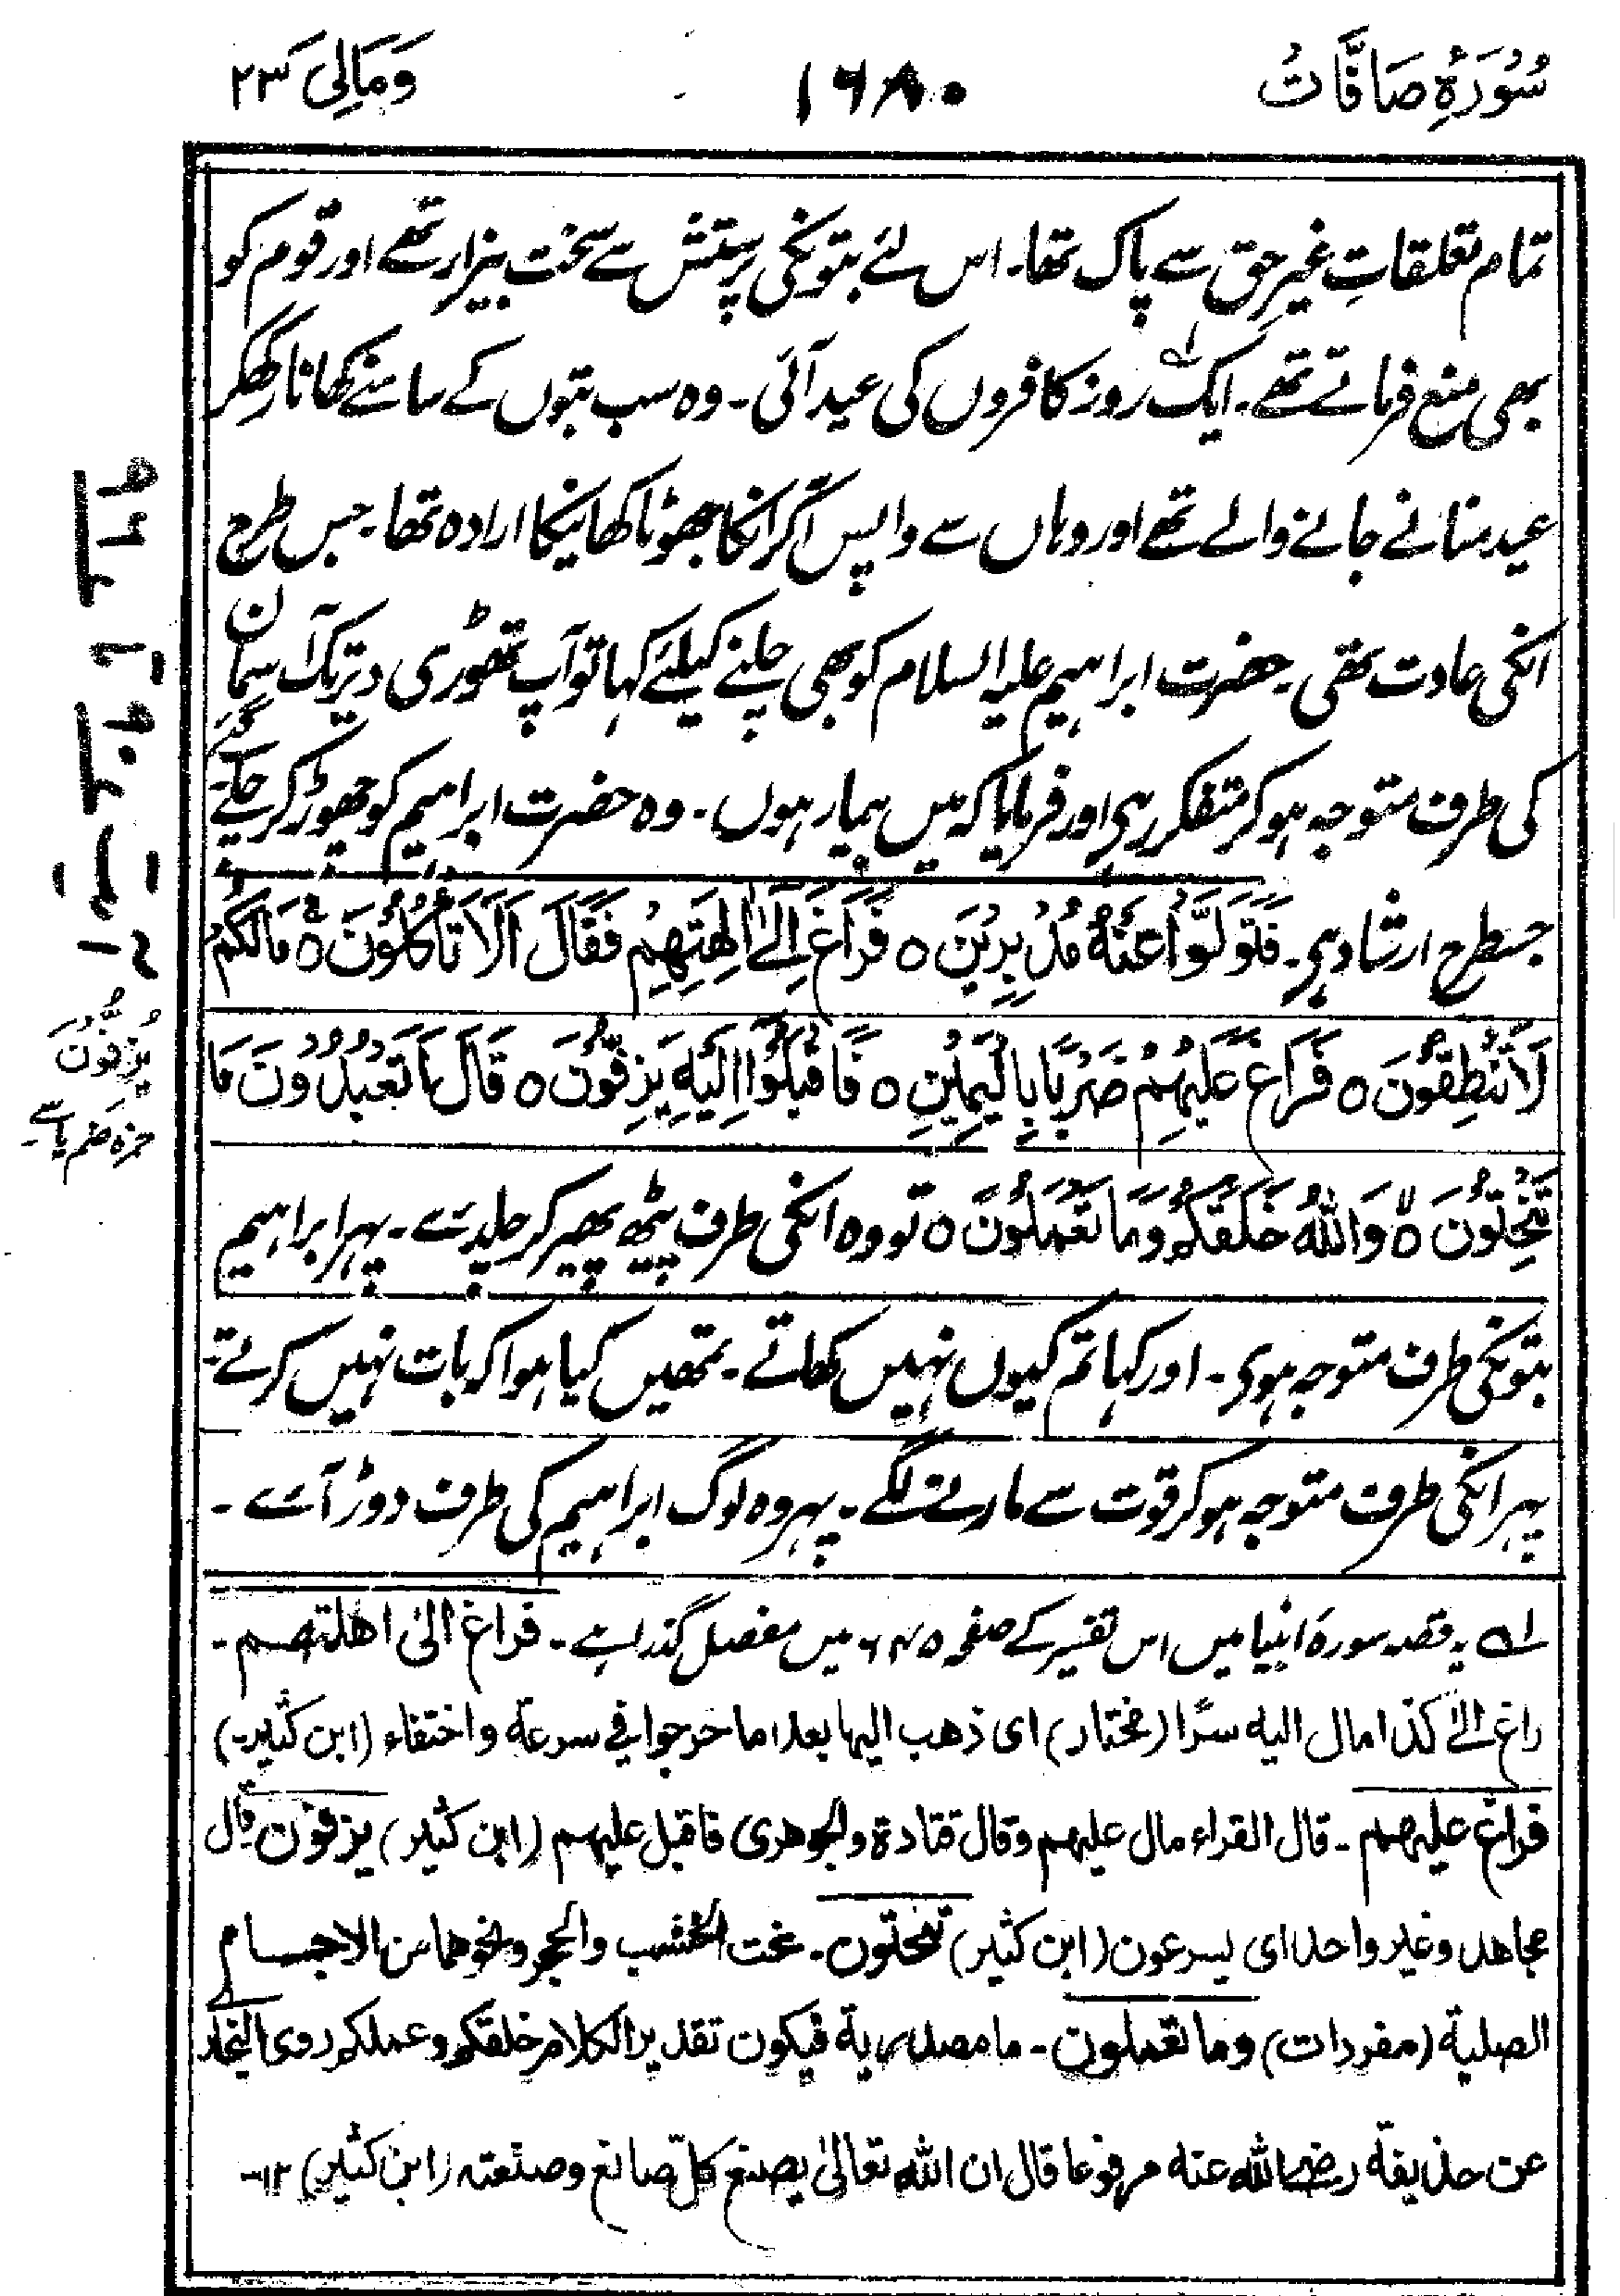 سُوْرَۂِ صَافَّاتُ
۱۶۸۰
وَمَالِیَ ۲۳
تمام تعلقاتِ غیرِ حق سے پاک تھا۔ اس لئے بتونکی پرستش سے سخت بیزار تھے اور قوم کو
بھی منع فرماتے تھے۔ ایک ؂۱ روز کافروں کی عید آئی۔ وہ سب بتوں کے سامنے کھانا رکھکر
عید منانے جانے والے تھے اور وہاں سے واپس آکر انکا جھوٹا کھانیکا ارادہ تھا۔ جس طرح
انکی عادت تھی۔ حضرت ابراہیم علیہ السلام کو بھی چلنے کیلئے کہا تو آپ تھوڑی دیر تک آسمان
کی طرف متوجہ ہو کر متفکر رہی اور فرمایا کہ میں بیمار ہوں۔ وہ حضرت ابراہیم کو چھوڑ کر چلے گئے
جسطرح ارشاد ہی۔ فَتَوَلَّوْا عَنْهُ مُدْبِرِيْنَ ○ فَرَاغَ اِلٰٓى اٰلِهَتِهِمْ فَقَالَ اَلَا تَاْكُلُوْنَ ○ مَا لَكُمْ
لَا تَنْطِقُوْنَ ○ فَرَاغَ عَلَيْهِمْ ضَرْبًا بِالْيَمِيْنِ ○ فَاَقْبَلُوْٓا اِلَيْهِ يَزِفُّوْنَ ○ قَالَ اَتَعْبُدُوْنَ مَا
تَنْحِتُوْنَ ○ وَاللّٰهُ خَلَقَكُمْ وَمَا تَعْمَلُوْنَ ○ تو وہ انکی طرف پیٹھ پھیر کر چلدئے۔ پہر ابراہیم
بتونکی طرف متوجہ ہوی۔ اور کہا تم کیوں نہیں کھاتے۔ تمھیں کیا ہوا کہ بات نہیں کرتے۔
پہر انکی طرف متوجہ ہو کر قوت سے مارنے لگے۔ پہر وہ لوگ ابراہیم کی طرف دوڑ آئے۔
آیت ۹۰ تا ۹۶
يُزِفُّوْنَ
حمزہ ضم یا سے۔
؂۱ یہ قصہ سورۂ انبیا میں اس تفسیر کے صفحہ میں مفصل گذرا ہے۔ فراغ الیٰ اھلتھم۔
راغ الیٰ کذا مال الیه سرًّا (مختار) ای ذھب الیھا بعد اما خرجوا فی سرعة واختفاء (ابن کثیر۔)
فراغ علیھم۔ قال الفراء مال علیھم وقال قتادة والجوھری فاقبل علیھم (ابن کثیر) یزفون قال
مجاھد وغیر واحد ای یسرعون (ابن کثیر) تنحتون۔ نحت الخشب والحجر ونحوھما من الاجسام
الصلبة (مفردات) وما تعملون۔ ما مصدریة فیکون تقدیر الکلام خلقکم وعملکم روی البخار
عن حذیفة رضی اللہ عنه مرفوعا قال ان اللہ تعالیٰ یصنع کل صانع وصنعته (ابن کثیر) ۱۲۔